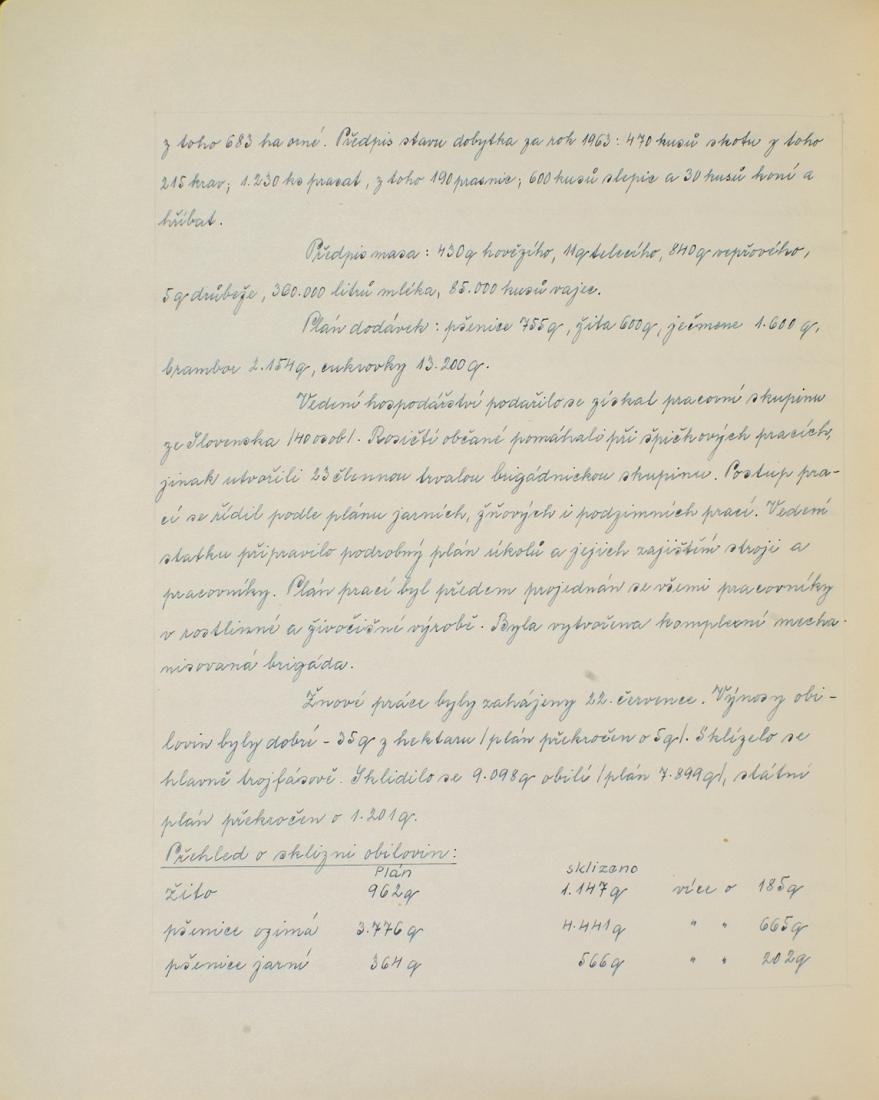 z toho 683 ha orné. Předpis stavu dobytka za rok 1963: 470 kusů skotu z toho
215 krav; 1.230 ks prasat, z toho 190 prasnic; 600 kusů slepic a 30 kusů koní a
hříbat.
Předpis masa: 430q hovězího, 11q telecího, 840q vepřového,
5q drůbeže, 360.000 litrů mléka, 85.000 kusů vajec.
Plán dodávek: pšenice 755q, žita 600q, ječmene 1.600 q,
brambor 2.154q, cukrovky 13.200q.
Vedení hospodářství podařilo se získat pracovní skupinu
ze Slovenska /40 osob/. Rosičtí občané pomáhali při špičkových pracích,
jinak utvořili 23 člennou trvalou brigádnickou skupinu. Postup pra-
cí se řídil podle plánu jarních, žňových i podzimních prací. Vedení
statku připravilo podrobný plán úkolů a jejich zajištění stroji a
pracovníky. Plán prací byl předem projednán se všemi pracovníky
v rostlinné a živočišné výrobě. Byla vytvořena komplexní mecha-
nisovaná brigáda.
Žnové práce byly zahájeny 22. července. Výnosy obi-
lovin byly dobré - 35q z hektaru /plán překročen o 5q/. Sklízelo se
hlavně trojfásově. Sklidilo se 9.098q obilí /plán 7.899q/, státní
plán překročen o 1.201q.
Přehled o sklizni obilovin:
Plán sklizeno
žito 962q 1.147q více o 185q
pšenice ozimá 3.776q 4.441q " " 665q
pšenice jarní 364q 566q " " 202q